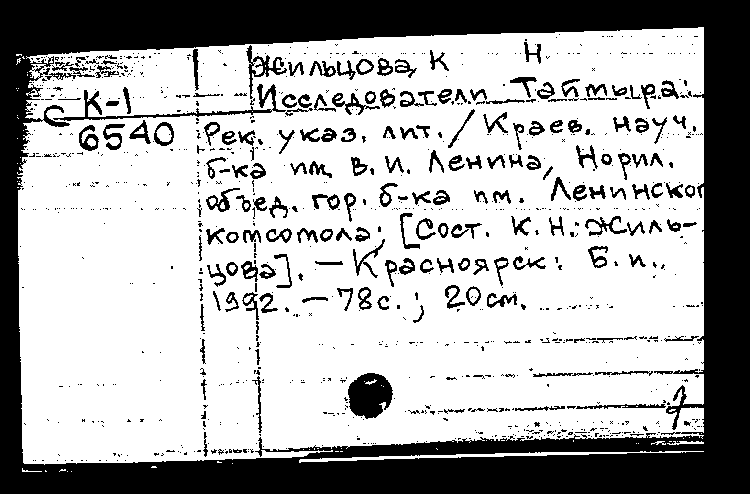 Жильцова, К Н
С К-1 Исследователи Таймыра:
6540 Рек. указ. лит. / Краев. науч.
б-ка им. В. И. Ленина, Норил.
объед. гор. б-ка им. Ленинског
комсомола; [Сост. К. Н. Жиль-
цова]. — Красноярск: Б. и.,
1992. — 78с.; 20см.